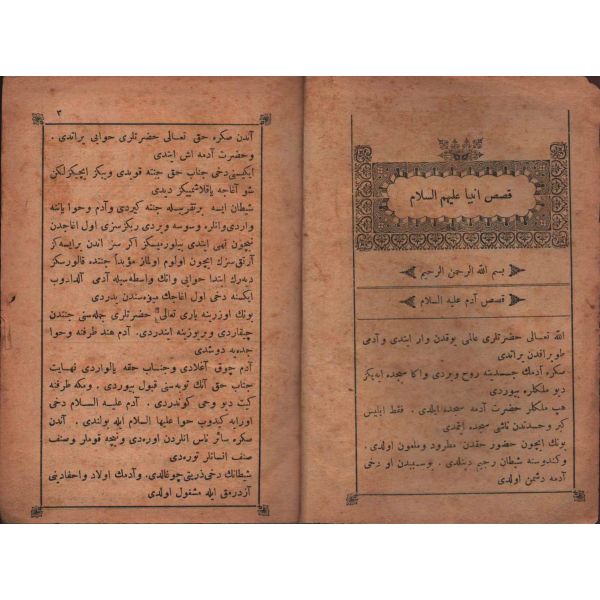 قصص انبیا علیهم السلام
بسم الله الرحمن الرحیم
قصص آدم علیه السلام
الله تعالی حضرتلری عالمی یوقدن وار ایتدی وآدمی
طوپراقدن یراتدی
صکره آدمك جسدینه روح ویردی واکا سجده ایدیکز
دیو ملکلره بیوردی
هپ ملکلر حضرت آدمه سجده ایلدی . فقط ابلیس
کبر وحسدندن ناشی سجده ایتمدی
بونك ایچون حضور حقدن مطرود وملعون اولدی .
وکندوسنه شیطان رجیم دینلدی . بوسببدن او دخی
آدمه دشمن اولدی
٣
آندن صکره حق تعالی حضرتلری حوایی یراتدی .
وحضرت آدمه اش ایتدی
ایکیسنی دخی جناب حق جنته قویدی وییکز ایچیکز لکن
شو آغاجه یاقلاشمییکز دیدی
شیطان ایسه برتقریبسله جنته کیردی وآدم وحوا یاننه
واردی وانلره وسوسه ویردی ربکز سزی اول اغاجدن
نیچون نهی ایتدی بیلورمیسکز اکر سز اندن یرایسه کز
آرتق سزك ایچون اولوم اولماز مؤبداً جنتده قالورسکز
دیه رك ابتدا حوایی وانك واسطه سیله آدمی آلداتوب
ایکسنه دخی اول اغاجك میوه سندن یدردی
بونك اوزرینه باری تعالی حضرتلری جمله سنی جنتدن
چیقاردی ویریوزینه ایندردی . آدم هند طرفنه وحوا
جده یه دوشدی
آدم چوق آغلادی وجناب حقه یالواردی نهایت
جناب حق آنك توبه سنی قبول بیوردی . ومکه طرفنه
کیت دیو وحی کوندردی . آدم علیه السلام دخی
اورایه کیدوب حوا علیها السلام ایله بولندی . آندن
صکره سائر ناس انلردن اوره دی ونیچه قوملر وصنف
صنف انسانلر توره دی
شیطانك دخی ذریتی چوغالدی . وآدمك اولاد واحفادینی
آزدرمق ایله مشغول اولدی